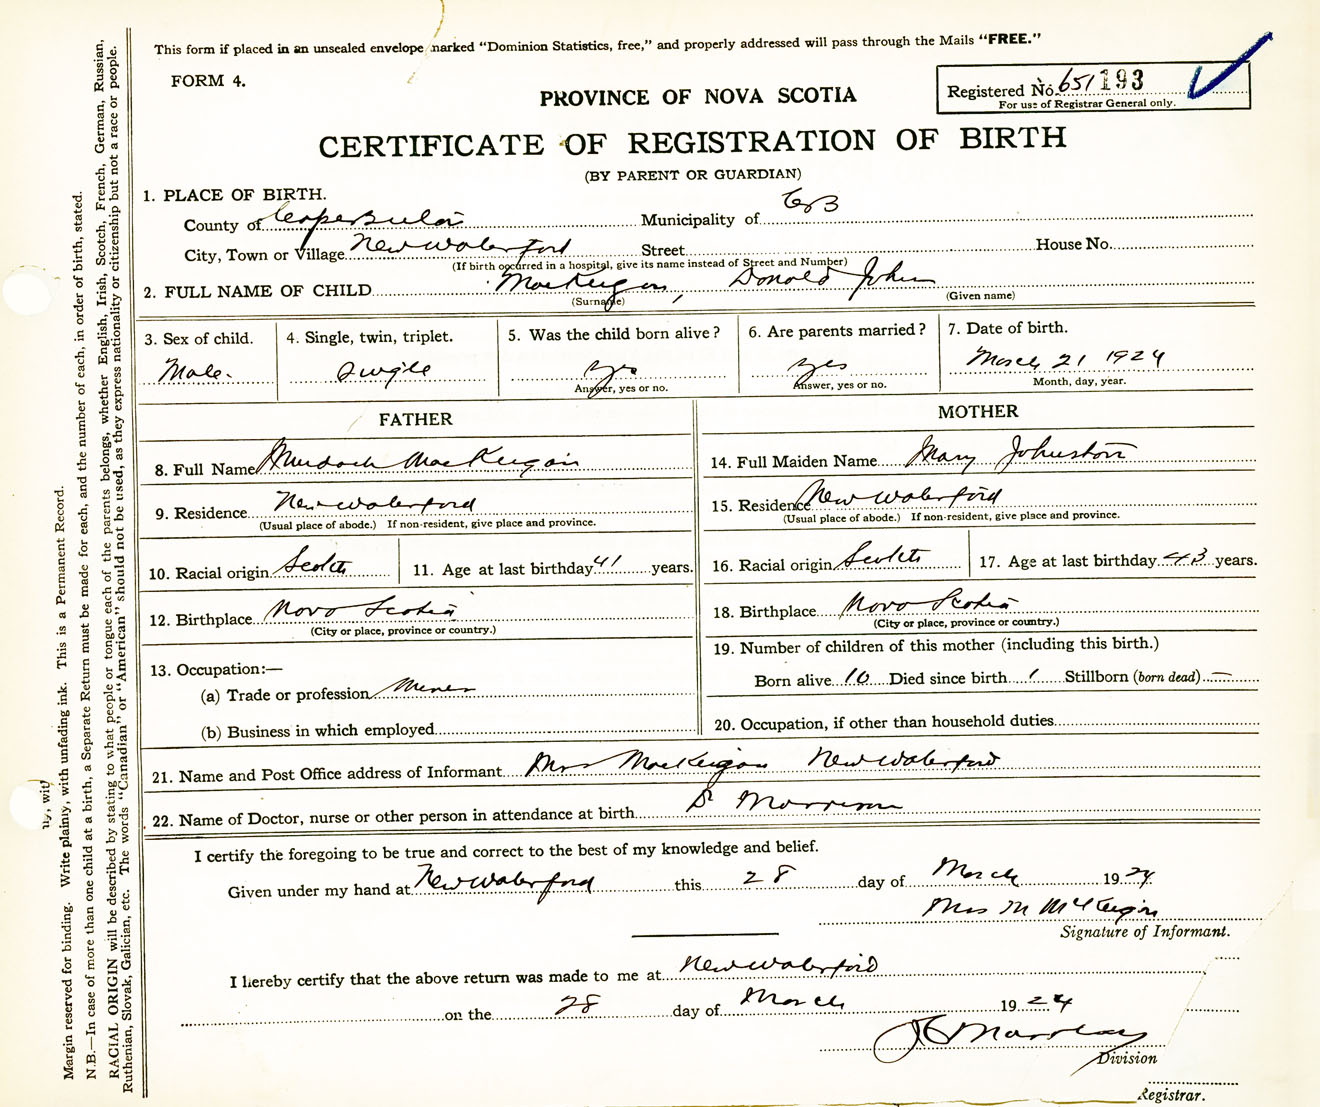 This form if placed in an unsealed envelope marked "Dominion Statistics, free," and properly addressed will pass through the Mails "FREE."
FORM 4.
Registered No. 651193
For use of Registrar General only.
PROVINCE OF NOVA SCOTIA
CERTIFICATE OF REGISTRATION OF BIRTH
(BY PARENT OR GUARDIAN)
1. PLACE OF BIRTH.
County of Cape Breton Municipality of CB
City, Town or Village New Waterford Street House No.
(If birth occurred in a hospital, give its name instead of Street and Number)
2. FULL NAME OF CHILD MacKeigan, Donald John
(Surname) (Given name)
3. Sex of child. 4. Single, twin, triplet. 5. Was the child born alive? 6. Are parents married? 7. Date of birth.
Male. Single yes yes March 21 1924
Answer, yes or no. Answer, yes or no. Month, day, year.
FATHER
8. Full Name Murdoch MacKeigan
9. Residence New Waterford
(Usual place of abode.) If non-resident, give place and province.
10. Racial origin Scotch 11. Age at last birthday 41 years.
12. Birthplace Nova Scotia
(City or place, province or country.)
13. Occupation:—
(a) Trade or profession Miner
(b) Business in which employed
MOTHER
14. Full Maiden Name Mary Johnston
15. Residence New Waterford
(Usual place of abode.) If non-resident, give place and province.
16. Racial origin Scotch 17. Age at last birthday 43 years.
18. Birthplace Nova Scotia
(City or place, province or country.)
19. Number of children of this mother (including this birth.)
Born alive 10 Died since birth 1 Stillborn (born dead) —
20. Occupation, if other than household duties
21. Name and Post Office address of Informant Mrs MacKeigan New Waterford
22. Name of Doctor, nurse or other person in attendance at birth Dr Morrison
I certify the foregoing to be true and correct to the best of my knowledge and belief.
Given under my hand at New Waterford this 28 day of March 1924
Mrs M McKeigan
Signature of Informant.
I hereby certify that the above return was made to me at New Waterford
on the 28 day of March 1924
Division
Registrar.
Margin reserved for binding. Write plainly, with unfading ink. This is a Permanent Record.
N.B.—In case of more than one child at a birth, a Separate Return must be made for each, and the number of each, in order of birth, stated.
RACIAL ORIGIN will be described by stating to what people or tongue each of the parents belongs, whether English, Irish, Scotch, French, German, Russian,
Ruthenian, Slovak, Galician, etc. The words "Canadian" or "American" should not be used, as they express nationality or citizenship but not a race or people.